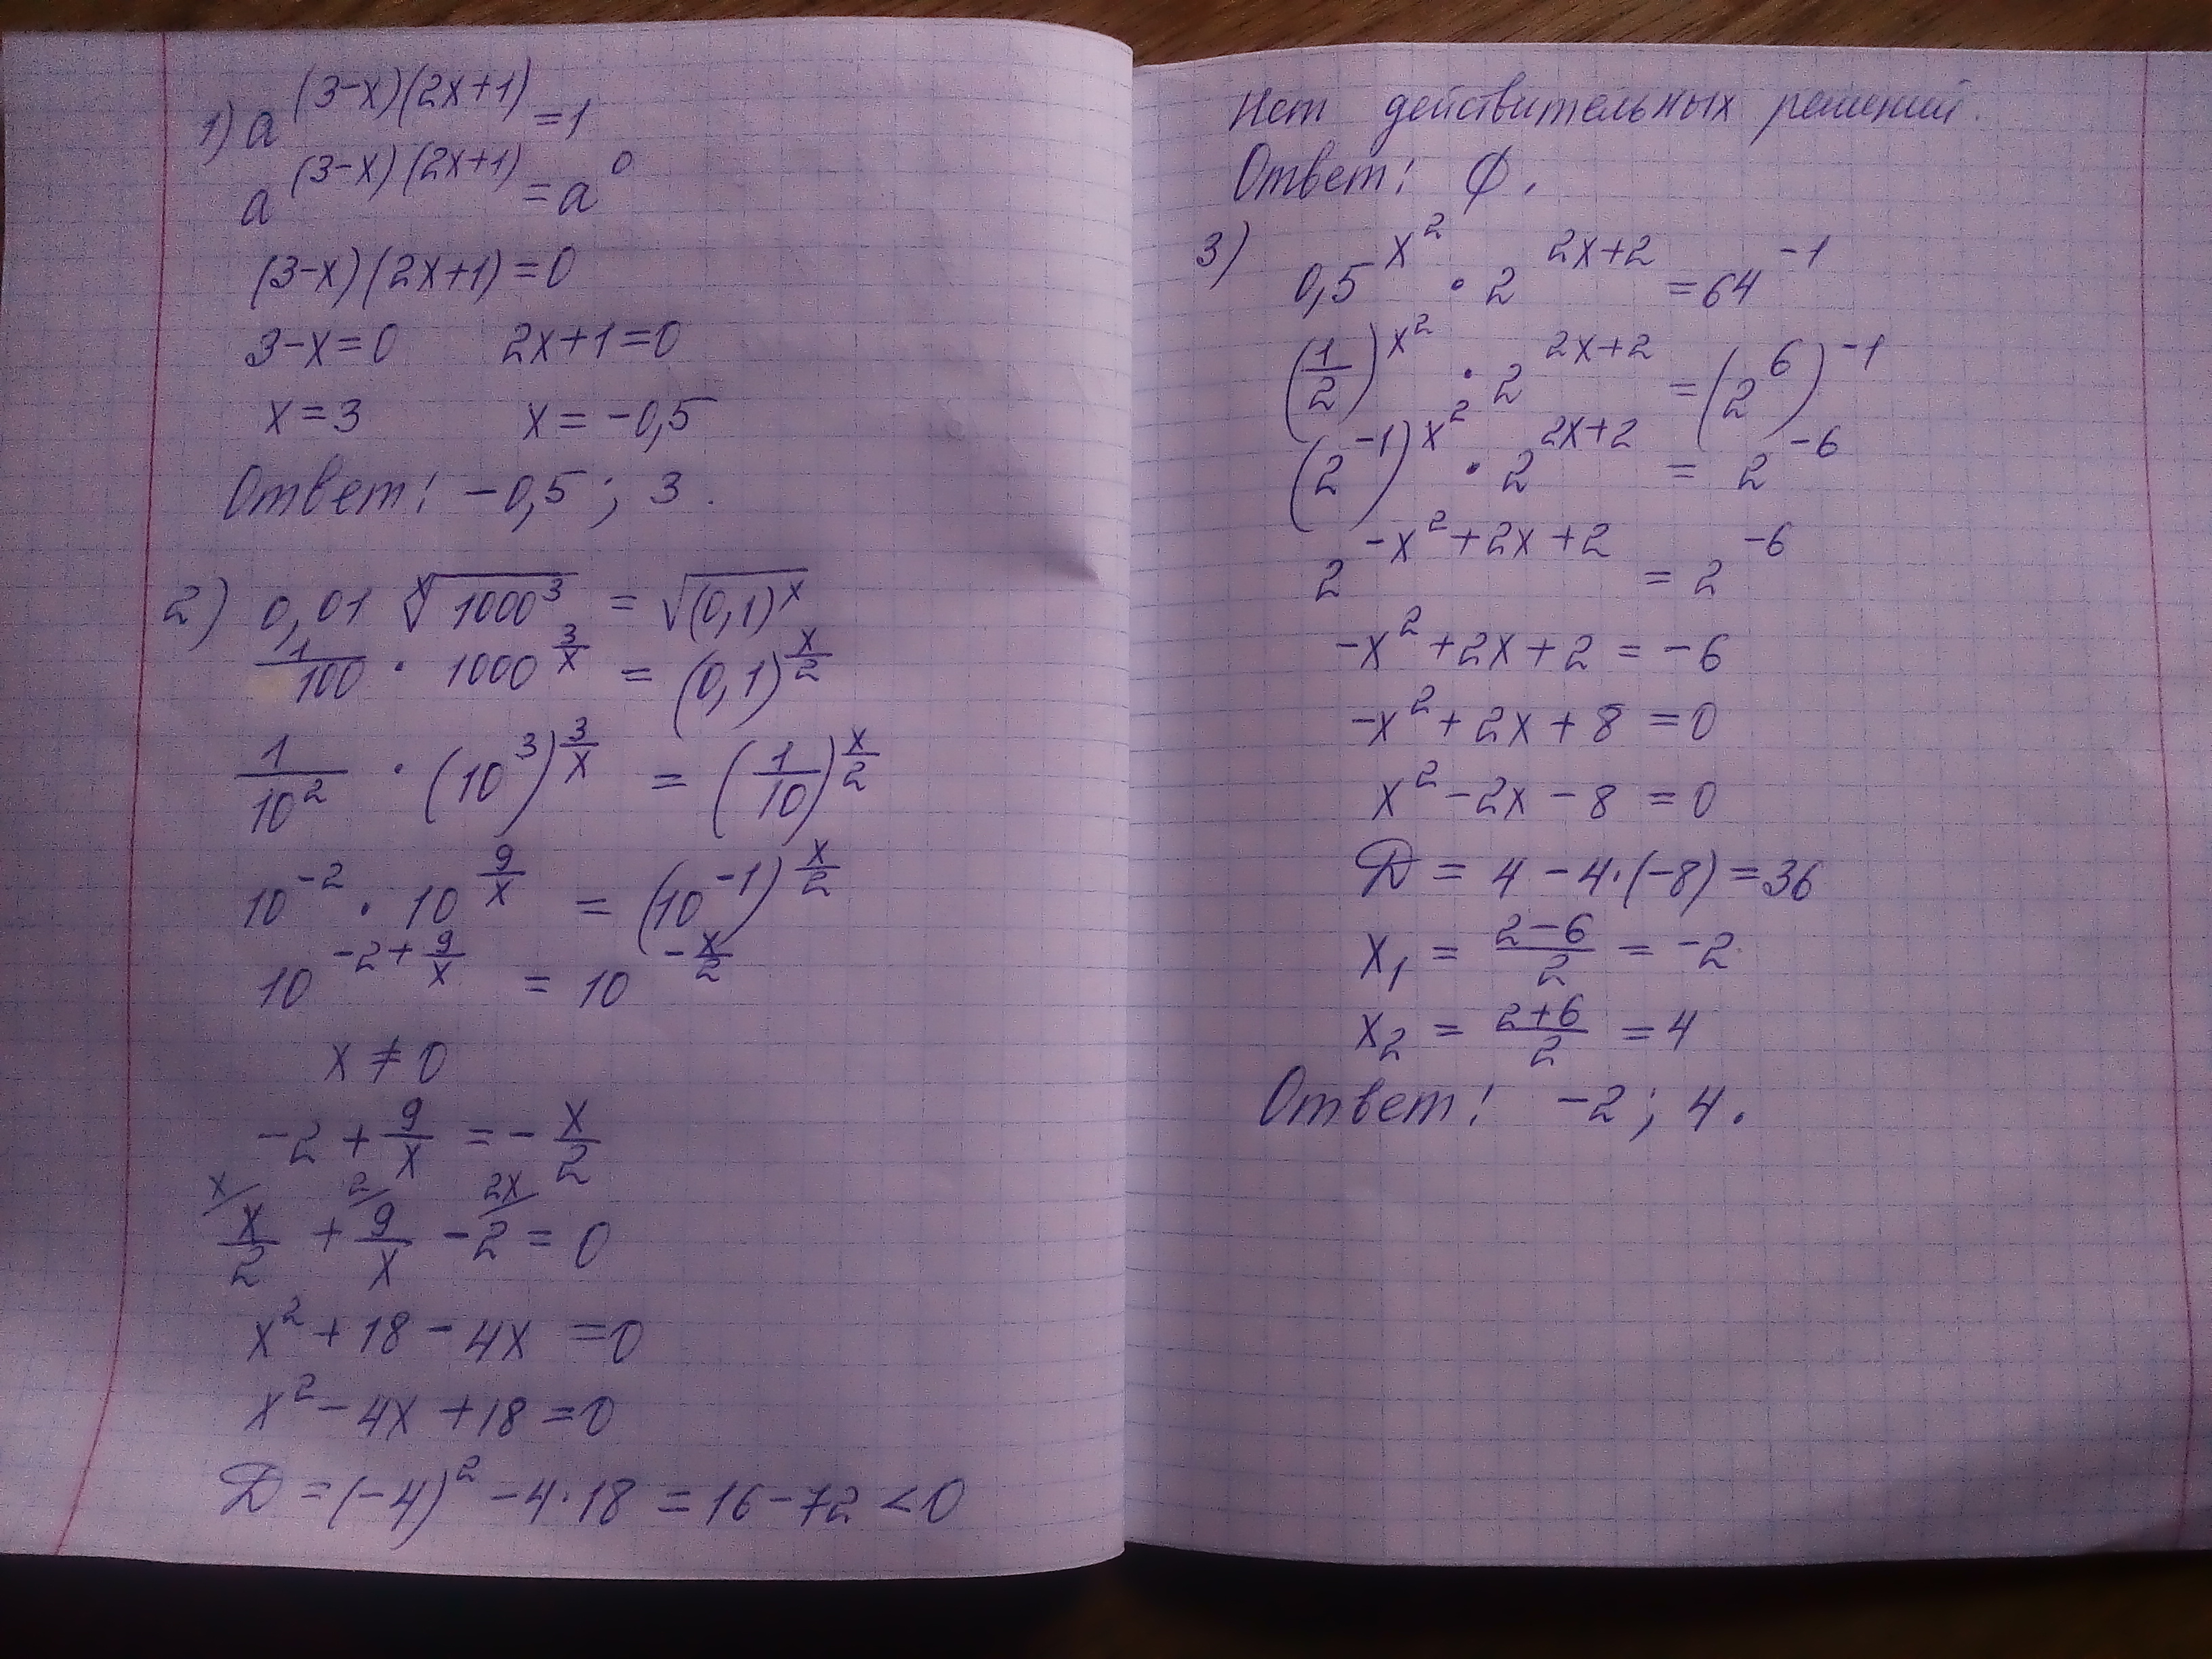 1) a^{(3-x)(2x+1)} = 1
a^{(3-x)(2x+1)} = a^0
(3-x)(2x+1) = 0
3-x=0 2x+1=0
x=3 x=-0,5
Ответ: -0,5; 3.
2) 0,01 \sqrt[x]{1000^3} = \sqrt{(0,1)^x}
\frac{1}{100} · 1000^{\frac{3}{x}} = (0,1)^{\frac{x}{2}}
\frac{1}{10^2} · (10^3)^{\frac{3}{x}} = (\frac{1}{10})^{\frac{x}{2}}
10^{-2} · 10^{\frac{9}{x}} = (10^{-1})^{\frac{x}{2}}
10^{-2+\frac{9}{x}} = 10^{-\frac{x}{2}}
x ≠ 0
-2 + \frac{9}{x} = -\frac{x}{2}
^{x/}\frac{x}{2} + ^{2/}\frac{9}{x} - ^{2x/}2 = 0
x^2 + 18 - 4x = 0
x^2 - 4x + 18 = 0
D = (-4)^2 - 4·18 = 16-72 < 0
Нет действительных решений.
Ответ: ∅.
3) 0,5^{x^2} · 2^{2x+2} = 64^{-1}
(\frac{1}{2})^{x^2} · 2^{2x+2} = (2^6)^{-1}
(2^{-1})^{x^2} · 2^{2x+2} = 2^{-6}
2^{-x^2+2x+2} = 2^{-6}
-x^2+2x+2 = -6
-x^2+2x+8 = 0
x^2-2x-8 = 0
D = 4-4·(-8) = 36
x_1 = \frac{2-6}{2} = -2
x_2 = \frac{2+6}{2} = 4
Ответ: -2; 4.